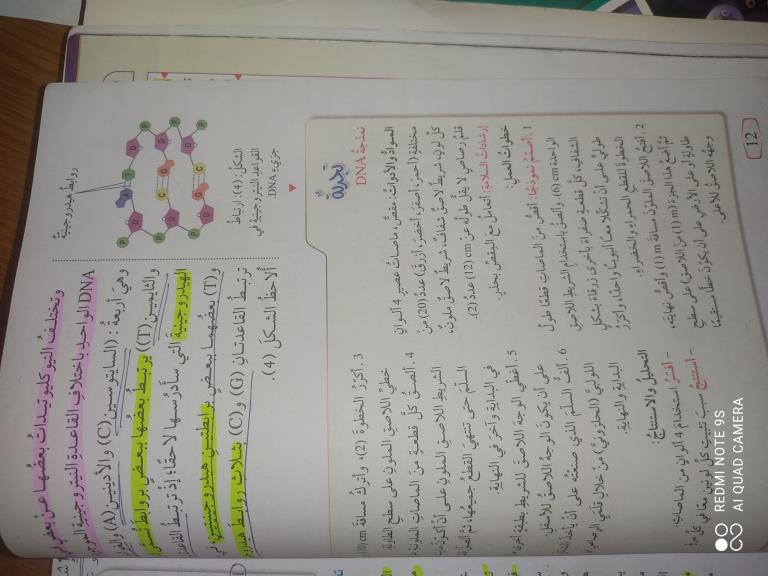 وتختلف النيوكليوتيدات بعضها عن بعض في
DNA الواحد باختلاف القاعدة النيتروجينية
وهي أربعة: (السايتوسين (C) والأدنين (A)
والثايمين (T)) يرتبط بعضها ببعض بروابط
الهيدروجينية التي سأدرسها لاحقًا، إذ ترتبط
و(T) بعضهما ببعض برابطتين هيدروجينيتين
ترتبط القاعدتان (G) و(C) بثلاث روابط
ألاحظ الشكل (4).
روابط هيدروجينية
P
P
P
P
D
D
D
D
D
D
A
T
C
G
G
C
P
P
P
الشكل (4): ارتباط
القواعد النيتروجينية في
جزيء DNA.
تجربة
نمذجة DNA
المواد والأدوات: مقص، ماصات عصير 4 ألوان
مختلفة (أحمر، أصفر، أخضر، أزرق) عدد (20) من
كل لون، شريط لاصق شفاف، شريط لاصق ملون،
قلم رصاص لا يقل طوله عن cm (12) عدد (2).
إرشادات السلامة: التعامل مع المقص بحذر.
خطوات العمل:
1. أصمم نموذجًا: أقص من الماصات قطعًا طول
الواحدة cm (6)، وألصق باستخدام الشريط اللاصق
الشفاف، كل قطعة صفراء بأخرى زرقاء بشكل
طولي على أن تشكلا معًا أنبوبًا واحدًا، وأكرر
الخطوة للقطع الحمراء والخضراء.
2. أفتح اللاصق الملون مسافة m (1) وأقص نهايته،
ثم ألصق هذا الجزء (m 1) من اللاصق) على سطح
طاولة أو على الأرض على أن يكون خطًا مستقيمًا
وجهه اللاصق للأعلى.
3. أكرر الخطوة (2)، وأترك مسافة cm
خطي اللاصق الملون على سطح الطاولة
4. ألصق كل قطعة من الماصات الملونة
الشريط اللاصق الملون على أن
السلم حتى تنتهي القطع جميعها، ثم
في البداية وآخر في النهاية.
5. أغطي الوجه اللاصق للشريط بطبقة
على أن يكون الوجه اللاصق للأسفل.
6. ألف السلم الذي صنعته على أن يأخذ
اللولبي (الحلزوني) من خلال قلمي الرصاص
البداية والنهاية.
التحليل والاستنتاج:
- أفسر استخدام 4 ألوان من الماصات.
- أستنتج سبب تثبيت كل لونين معًا في كل مرة
12
REDMI NOTE 9S
AI QUAD CAMERA